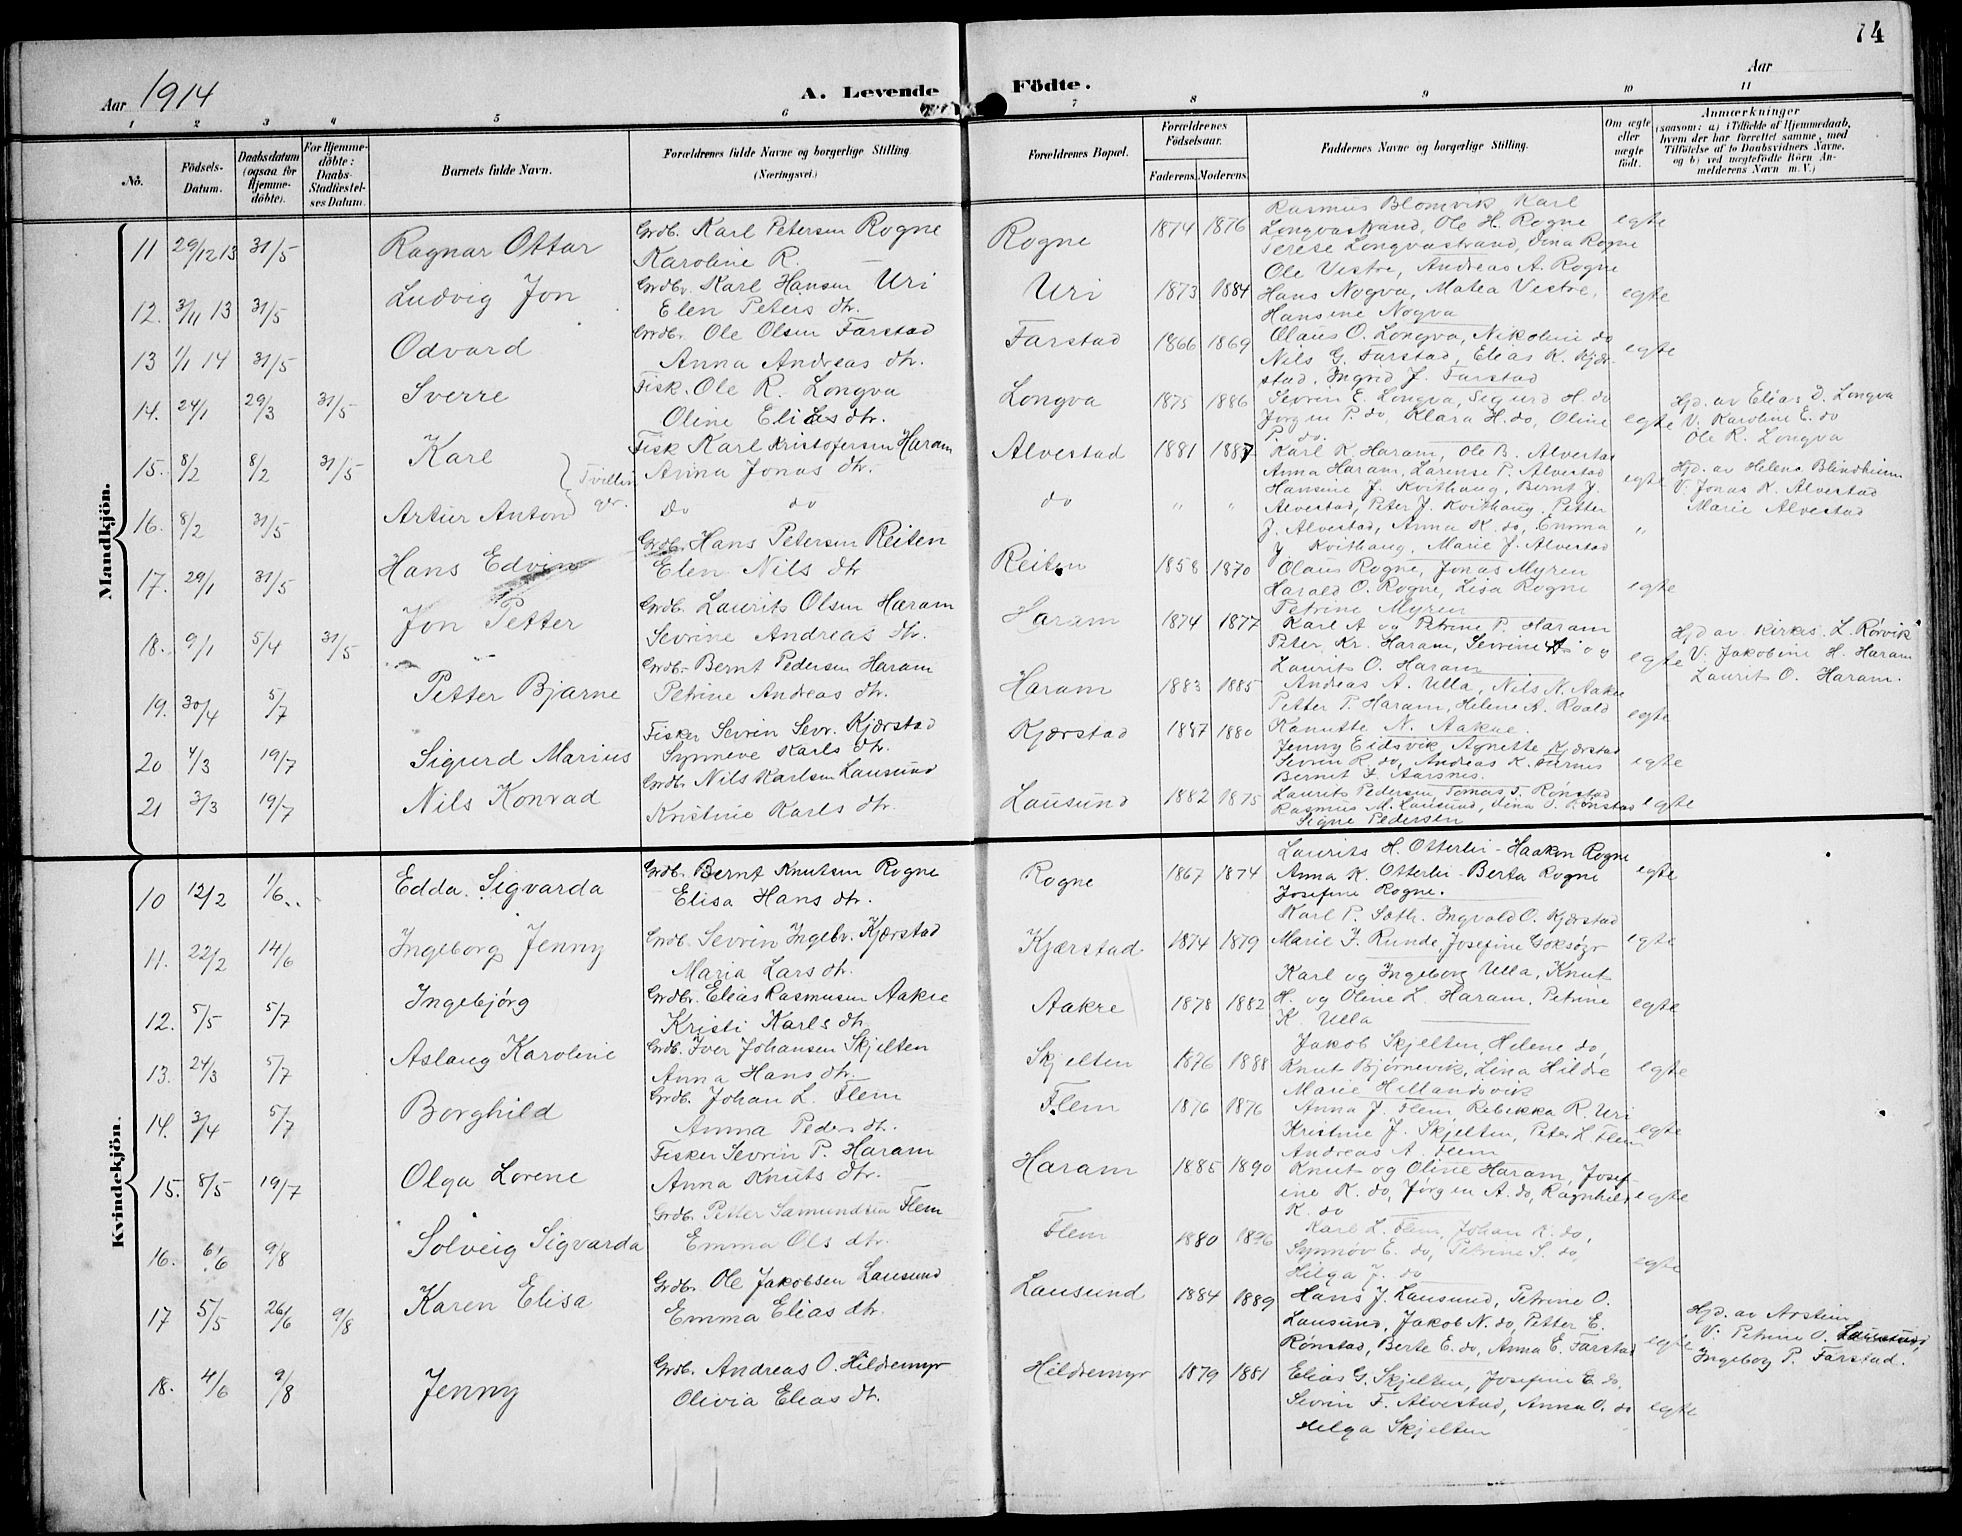 74
Aar 1914 A. Levende Födte. Aar
1 2 3 4 5 6 7 8 9 10 11
No. Födsels-Datum. Daabsdatum (ogsaa for Hjemmedöbte). For Hjemmedöbte: Daabs-Stadfæstelses Datum. Barnets fulde Navn. Forældrenes fulde Navne og borgerlige Stilling. (Næringsvei.) Forældrenes Bopæl. Forældrenes Födselsaar. Faderens. Moderens. Faddernes Navne og borgerlige Stilling. Om ægte eller uægte födt. Anmærkninger (saasom: a) i Tilfælde af Hjemmedaab, hvem der har forrettet samme, med Tilföielse af to Daabsvidners Navne, og b) ved uægtefödte Börn Anmelderens Navn m.V.)
Mandkjön.
11 29/12 13 31/5 Ragnar Ottar Grdb. Karl Petersen Rogne Karoline R. Rogne 1874 1876 Rasmus Blomvik, Karl Longvastrand, Ole H. Rogne Terese Longvastrand, Dina Rogne egte
12. 3/11 13 31/5 Ludvig Jon Grdbr. Karl Hansen Uri Elen Peters dtr. Uri 1873 1884 Ole Vestre, Andreas A. Rogne Hans Nogva, Matea Vestre, Hansine Nogva egte
13 1/1 14 31/5 Odvard Grdb. Ole Olsen Farstad Anna Andreas dtr. Farstad 1866 1869 Olaus O. Longva, Nikoline do Nils G. Farstad, Elias K. Kjærstad, Ingrid J. Farstad egte
14. 24/1 29/3 31/5 Sverre Fisk. Ole R. Longva Oline Elias dtr. Longva 1875 1886 Sevrin E. Longva, Sigurd H. do Jørgen P. do, Klara H. do, Oline P. do. egte Hjd. av Elias D. Longva V. Karoline E. do Ole R. Longva
15. 8/2 8/2 31/5 Karl } Tvillinger. Fisk Karl Kristofersen Haram Anna Jonas dtr. Alvestad 1881 1887 Karl K. Haram, Ole B. Alvestad Anna Haram, Larense P. Alvestad Hansine J. Kvithaug, Bernt J. egte Hjd. av Helena Blindheim V. Jonas K. Alvestad Marie Alvestad
16. 8/2 31/5 Artur Anton Do do do " " Alvestad, Peter J. Kvithaug, Petter J. Alvestad, Anna K. do, Emma J. Kvithaug, Marie J. Alvestad "
17. 29/1 31/5 Hans Edvin Grdb. Hans Petersen Reiten Elen Nils dtr Reiten 1858 1870 Olaus Rogne, Jonas Myren Harald O. Rogne, Lisa Rogne Petrine Myren egte
18. 9/1 5/4 31/5 Jon Petter Grdb. Laurits Olsen Haram Sevrine Andreas dtr. Haram 1874 1877 Karl A og Petrine P. Haram Peter Kr. Haram, Sevrine A og Laurits O. Haram egte Hjd av Kirkes. L. Rørvik V. Jakobine H. Haram Laurits O. Haram.
19. 30/4 5/7 Petter Bjarne Grdb. Bernt Pedersen Haram Petrine Andreas dtr. Haram 1883 1885 Andreas A. Ulla, Nils N. Aakre Petter P. Haram, Helene A. Roald Hanutte N. Aakre. egte
20 4/3 19/7 Sigurd Marius Fisker Sevrin Sevr. Kjærstad Synneve Karls dtr. Kjærstad 1887 1880 Jenny Eidsvik, Agnette Kjærstad Sevrin R. do, Andreas K. Furnes Bernt F. Aarsnes. egte
21 3/3 19/7 Nils Konrad Grdb. Nils Karlsen Lausund Kristine Karls dtr. Lausund 1882 1875 Laurits Pedersen, Tomas T. Rønstad Rasmus M. Lausund, Dina O. Rønstad Signe Pedersen egte
Kvindekjön.
10 12/2 1/6 Edda Sigvarda Grdb. Bernt Knutsen Rogne Elisa Hans dtr. Rogne 1867 1874 Laurits H. Otterlei - Haakon Rogne Anna K. Otterlei - Berta Rogne Josefine Rogne. egte
11. 22/2 14/6 Ingeborg Jenny Grdb. Sevrin Ingebr. Kjærstad Maria Lars dtr. Kjærstad 1874 1879 Karl P. Sæth. Ingvald O. Kjærstad Marie F. Runde, Josefine Goksøyr egte
12. 5/5 5/7 Ingebjørg Grdbr. Elias Rasmusen Aakre Kristi Karls dtr. Aakre 1878 1882 Karl og Ingeborg Ulla, Knut H. og Oline L. Haram, Petrine K. Ulla egte
13. 24/3 5/7 Aslaug Karoline Grdb. Iver Johansen Skjelten Anna Hans dtr. Skjelten 1876 1888 Jakob Skjelten, Helene do, Knut Bjørnevik, Lina Hildre Marie Hellandsvik egte
14. 3/4 5/7 Borghild Grdb. Johan L. Flem Anna Peders dtr. Flem 1876 1876 Anna J. Flem, Rebekka R. Uri Kristine J. Skjelten, Peter L. Flem Andreas A. Flem egte
15. 8/5 19/7 Olga Lovene Fisker Sevrin P. Haram Anna Knuts dtr. Haram 1885 1890 Knut og Oline Haram, Josefine K. do, Jørgen A. do, Ragnhild K. do egte
16. 6/6 9/8 Solveig Sigvarda Grdb. Petter Samundsen Flem Emma Ols dtr. Flem 1880 1896 Karl L. Flem, Johan K. do, Synnøv E. do, Petrine S. do, Hilga J. do egte
17 5/5 26/6 9/8 Karen Elisa Grdbr. Ole Jakobsen Lausund Emma Elias dtr. Lausund 1884 1889 Hans J. Lausund, Petrine O. Lausund, Jakob N. do, Petter E. Rønstad, Berte E. do, Anna E. Farstad egte Hjd. av V. Petrine O. Lausund, Ingeborg P. Farstad.
18. 4/6 9/8 Jenny Grdb. Andreas O. Hildremyr Olivia Elias dtr. Hildremyr 1879 1881 Elias G. Skjelten, Josefine E. do, Sevrin F. Alvestad, Anna O. do Helga Skjelten egte